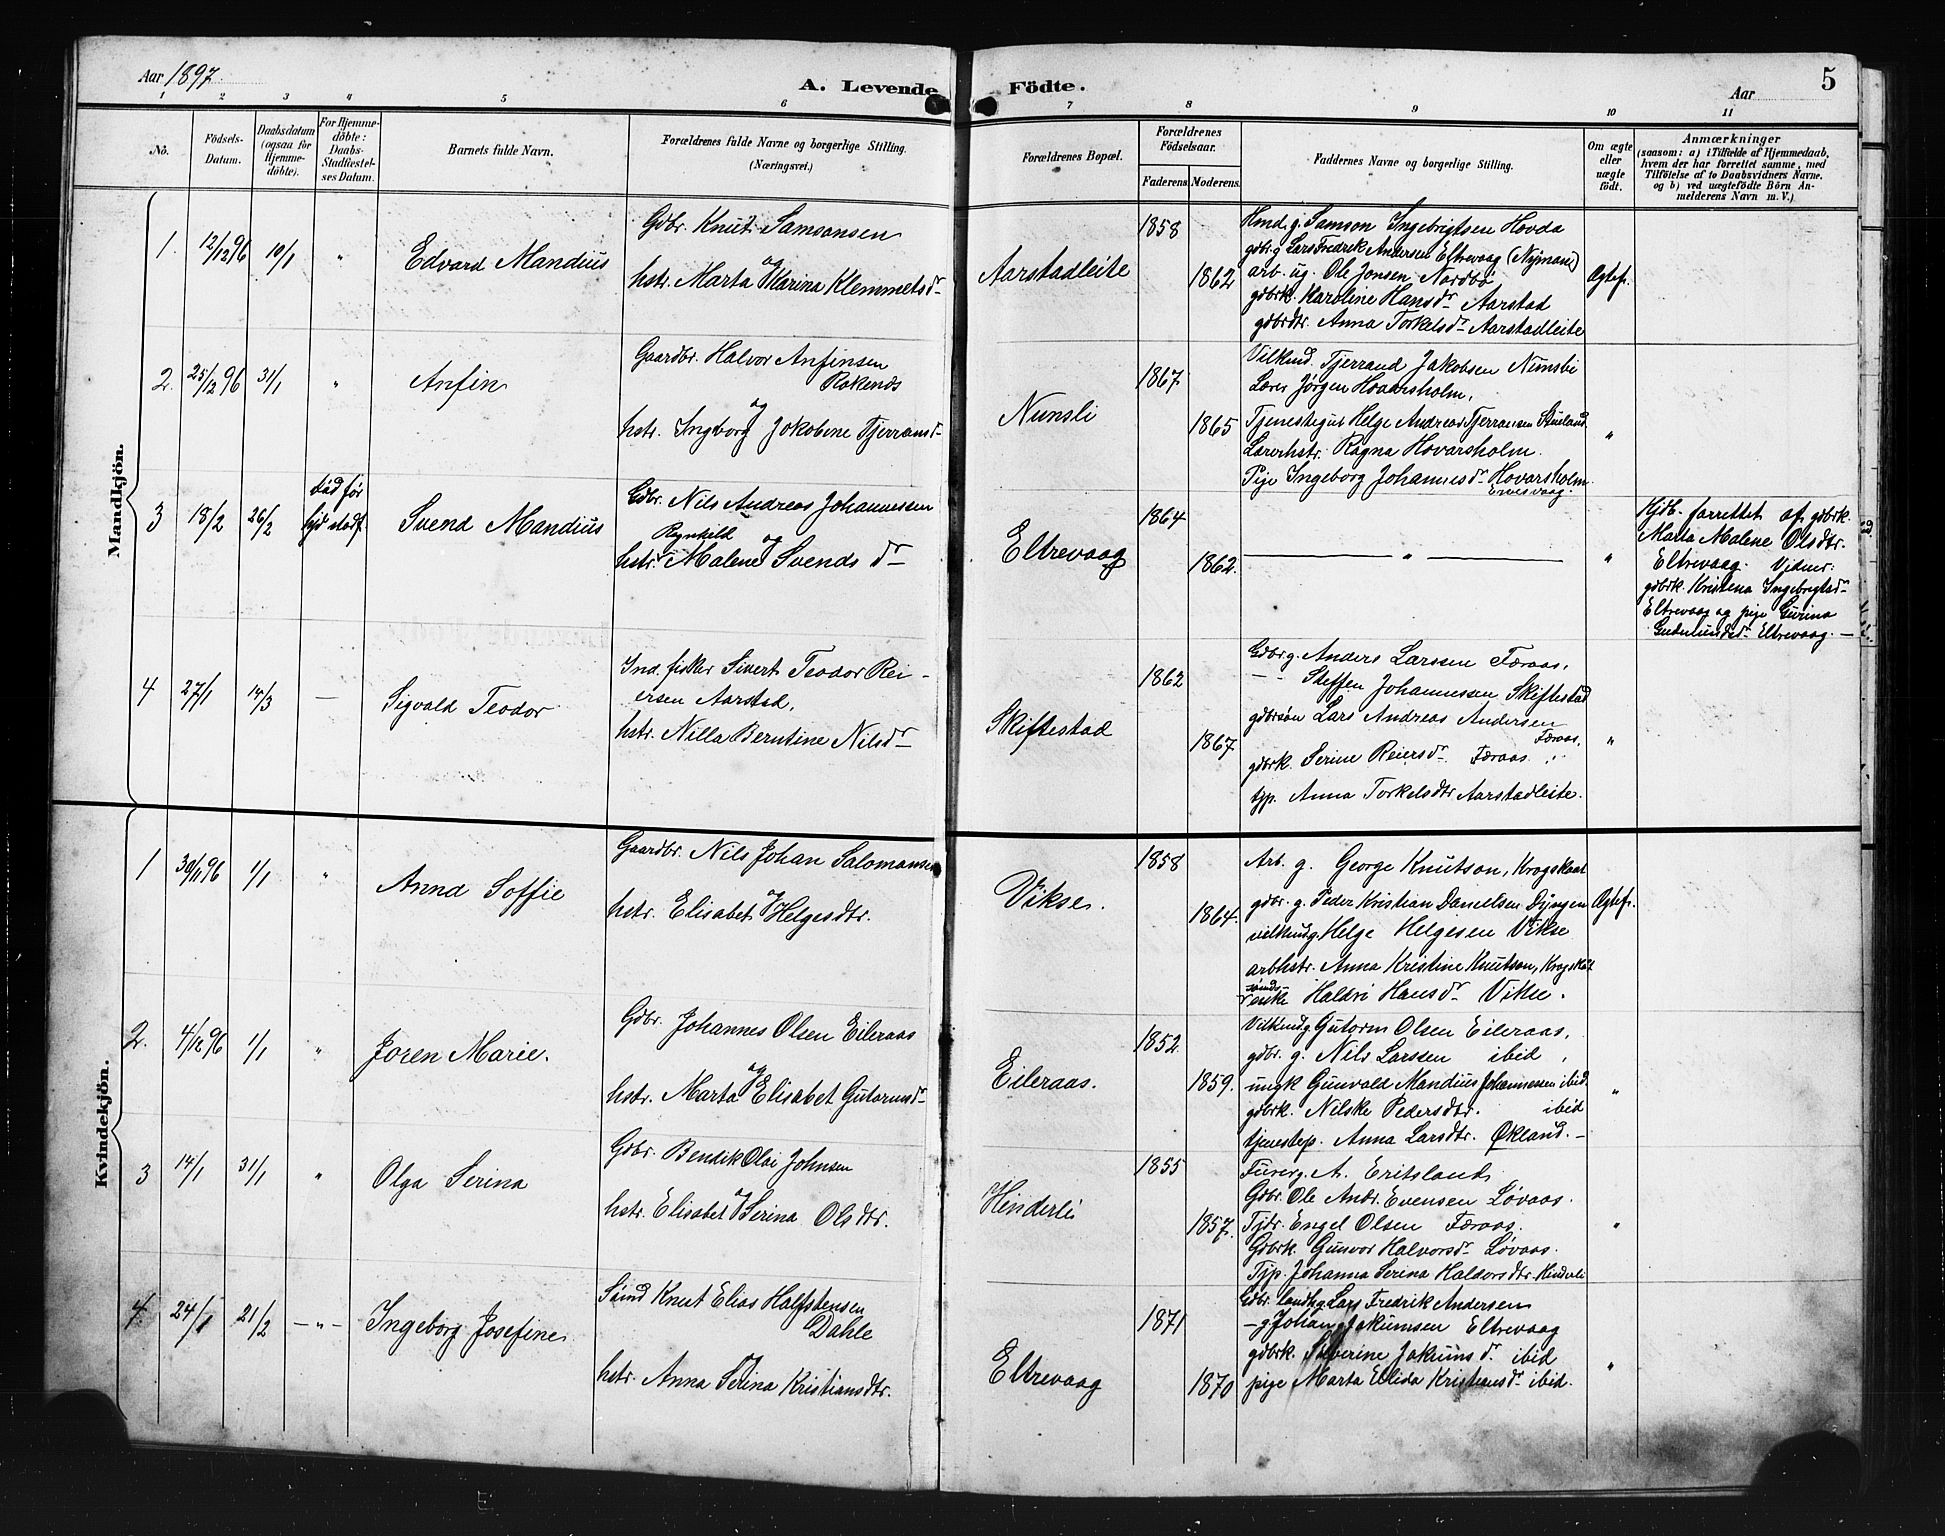 Aar 1897
A. Levende Födte.
Aar
5
1 2 3 4 5 6 7 8 9 10 11
No.
Födsels-Datum.
Daabsdatum (ogsaa for Hjemme-döbte).
For Hjemme-döbte: Daabs-Stadfæstel-ses Datum.
Barnets fulde Navn.
Forældrenes fulde Navne og borgerlige Stilling.
(Næringsvei.)
Forældrenes Bopæl.
Forældrenes Födselsaar.
Faderens Moderens.
Faddernes Navne og borgerlige Stilling.
Om ægte eller uægte födt.
Anmærkninger
(saasom: a) i Tilfælde af Hjemmedaab,
hvem der har forrettet samme, med
Tilföielse af to Daabsvidners Navne,
og b) ved uægtefödte Börn An-
melderens Navn m. V.)
Mandkjön.
1. 12/12 96 10/1 " Edvard Mandius
Gdbr. Knut Samsonsen
og
hstr. Marta Karina Klemmetsdr
Aarstadleite
1858
1862
Hmd. g. Samson Ingebrigtsen Hovda
gdbr. g Lars Fredrik Andersen Eltrevaag (Nymane)
arb. ug. Ole Jonsen Nordbø
gdbrk. Karoline Hansdr Aarstad
gdbrdtr. Anna Torkelsdr Aarstadleite
Ægtef.
2. 25/12 96 31/1 " Anfin
Gaardbr. Halvor Anfinsen
Rokends
og
hstr. Ingborg Jakobine Tjerransdr
Nunsli
1867
1865
Vilkmd. Tjerrand Jakobsen Nunsli
Lærer Jørgen Hovarsholm.
Tjenestegut Helge Andreas Tjerransen
Lærerhstr. Ragna Hovarsholm.
Pige Ingeborg Johannesdr Hovarsholm
"
3 18/2 26/2 død før hjd stadf. Svend Mandius
Gdbr. Nils Andreas Johannessen
og
hstr. Malene Svendsdr
Eltrevaag
1864
1862.
"
"
Hjdb. forrettet af gdbrk.
Marta Malene Olsdtr.
Eltrevaag. Vidner:
gdbrk. Kristena Ingebrigtsdr
Eltrevaag og pige Gurina
Gudmundsdr Eltrevaag. —
4 27/1 14/3 — Sigvald Teodor
Ind. fisker Sivert Teodor Rei-
ersen Aarstad,
hstr. Nilla Berntine Nilsdr
Skiftestad
1862
1867
Gdbr g. Anders Larssen Færaas,
— Steffen Johannessen Skiftestad
gdbrsøn Lars Andreas Andersen
Færaas,
gdbrk. Serine Reiersdr Færaas
tjp. Anna Torkelsdtr Aarstadleite.
"
Kvindekjön.
1 30/11 96 1/1 " Anna Soffie
Gaardbr. Nils Johan Salomonsen
og
hstr. Elisabet Helgesdtr.
Vikse.
1858
1864.
Arb. g. George Knutson, Krogskaat
gdbr. g. Peder Kristian Danielsen Dyngen
vilkmdg. Helge Helgesen Vikse
arbhstr. Anna Kristine Knutson, Krogskat
enke Haldri Hansdr Vikse.
Ægtef.
2. 4/12 96 1/1 " Joren Marie.
Gdbr. Johannes Olsen Eileraas
og
hstr. Marta Elisabet Gutormsdr
Eileraas.
1852
1859.
Vilkmdg Gutorm Olsen Eileraas,
gdbr. g. Nils Larssen ibid,
ungk Gunvald Mandius Johannessen ibid.
gdbrk. Nilske Pedersdtr. ibid
tjenestep. Anna Larsdtr. Økland. —
"
3 14/1 31/1 " Olga Serina
Gdbr. Bendik Olai Johnsen
og
hstr. Elisabet Serina Olsdtr.
Hinderli
1855
1857.
A. Eritsland
Gdbr. Ole Andr. Evensen Løvaas.
Tjdr. Engel Olsen Færaas.
Gdbrk. Gunvor Halvorsdr Løvaas.
Tjp. Johanna Serina Haldorsdtr Hinderli
"
4. 24/1 21/2 — " — Ingeborg Josefine
Knut Elias Halfstensen
Dahle
hstr. Anna Serina Kristiansdtr.
Eltrevaag
1871
1870
Gdbr. Lars Fredrik Andersen
— g Johan Jakumsen Eltrevaag
gdbrk. Severine Jakumsdr. ibid
pige Marta Elida Kristiansdr ibid.
"